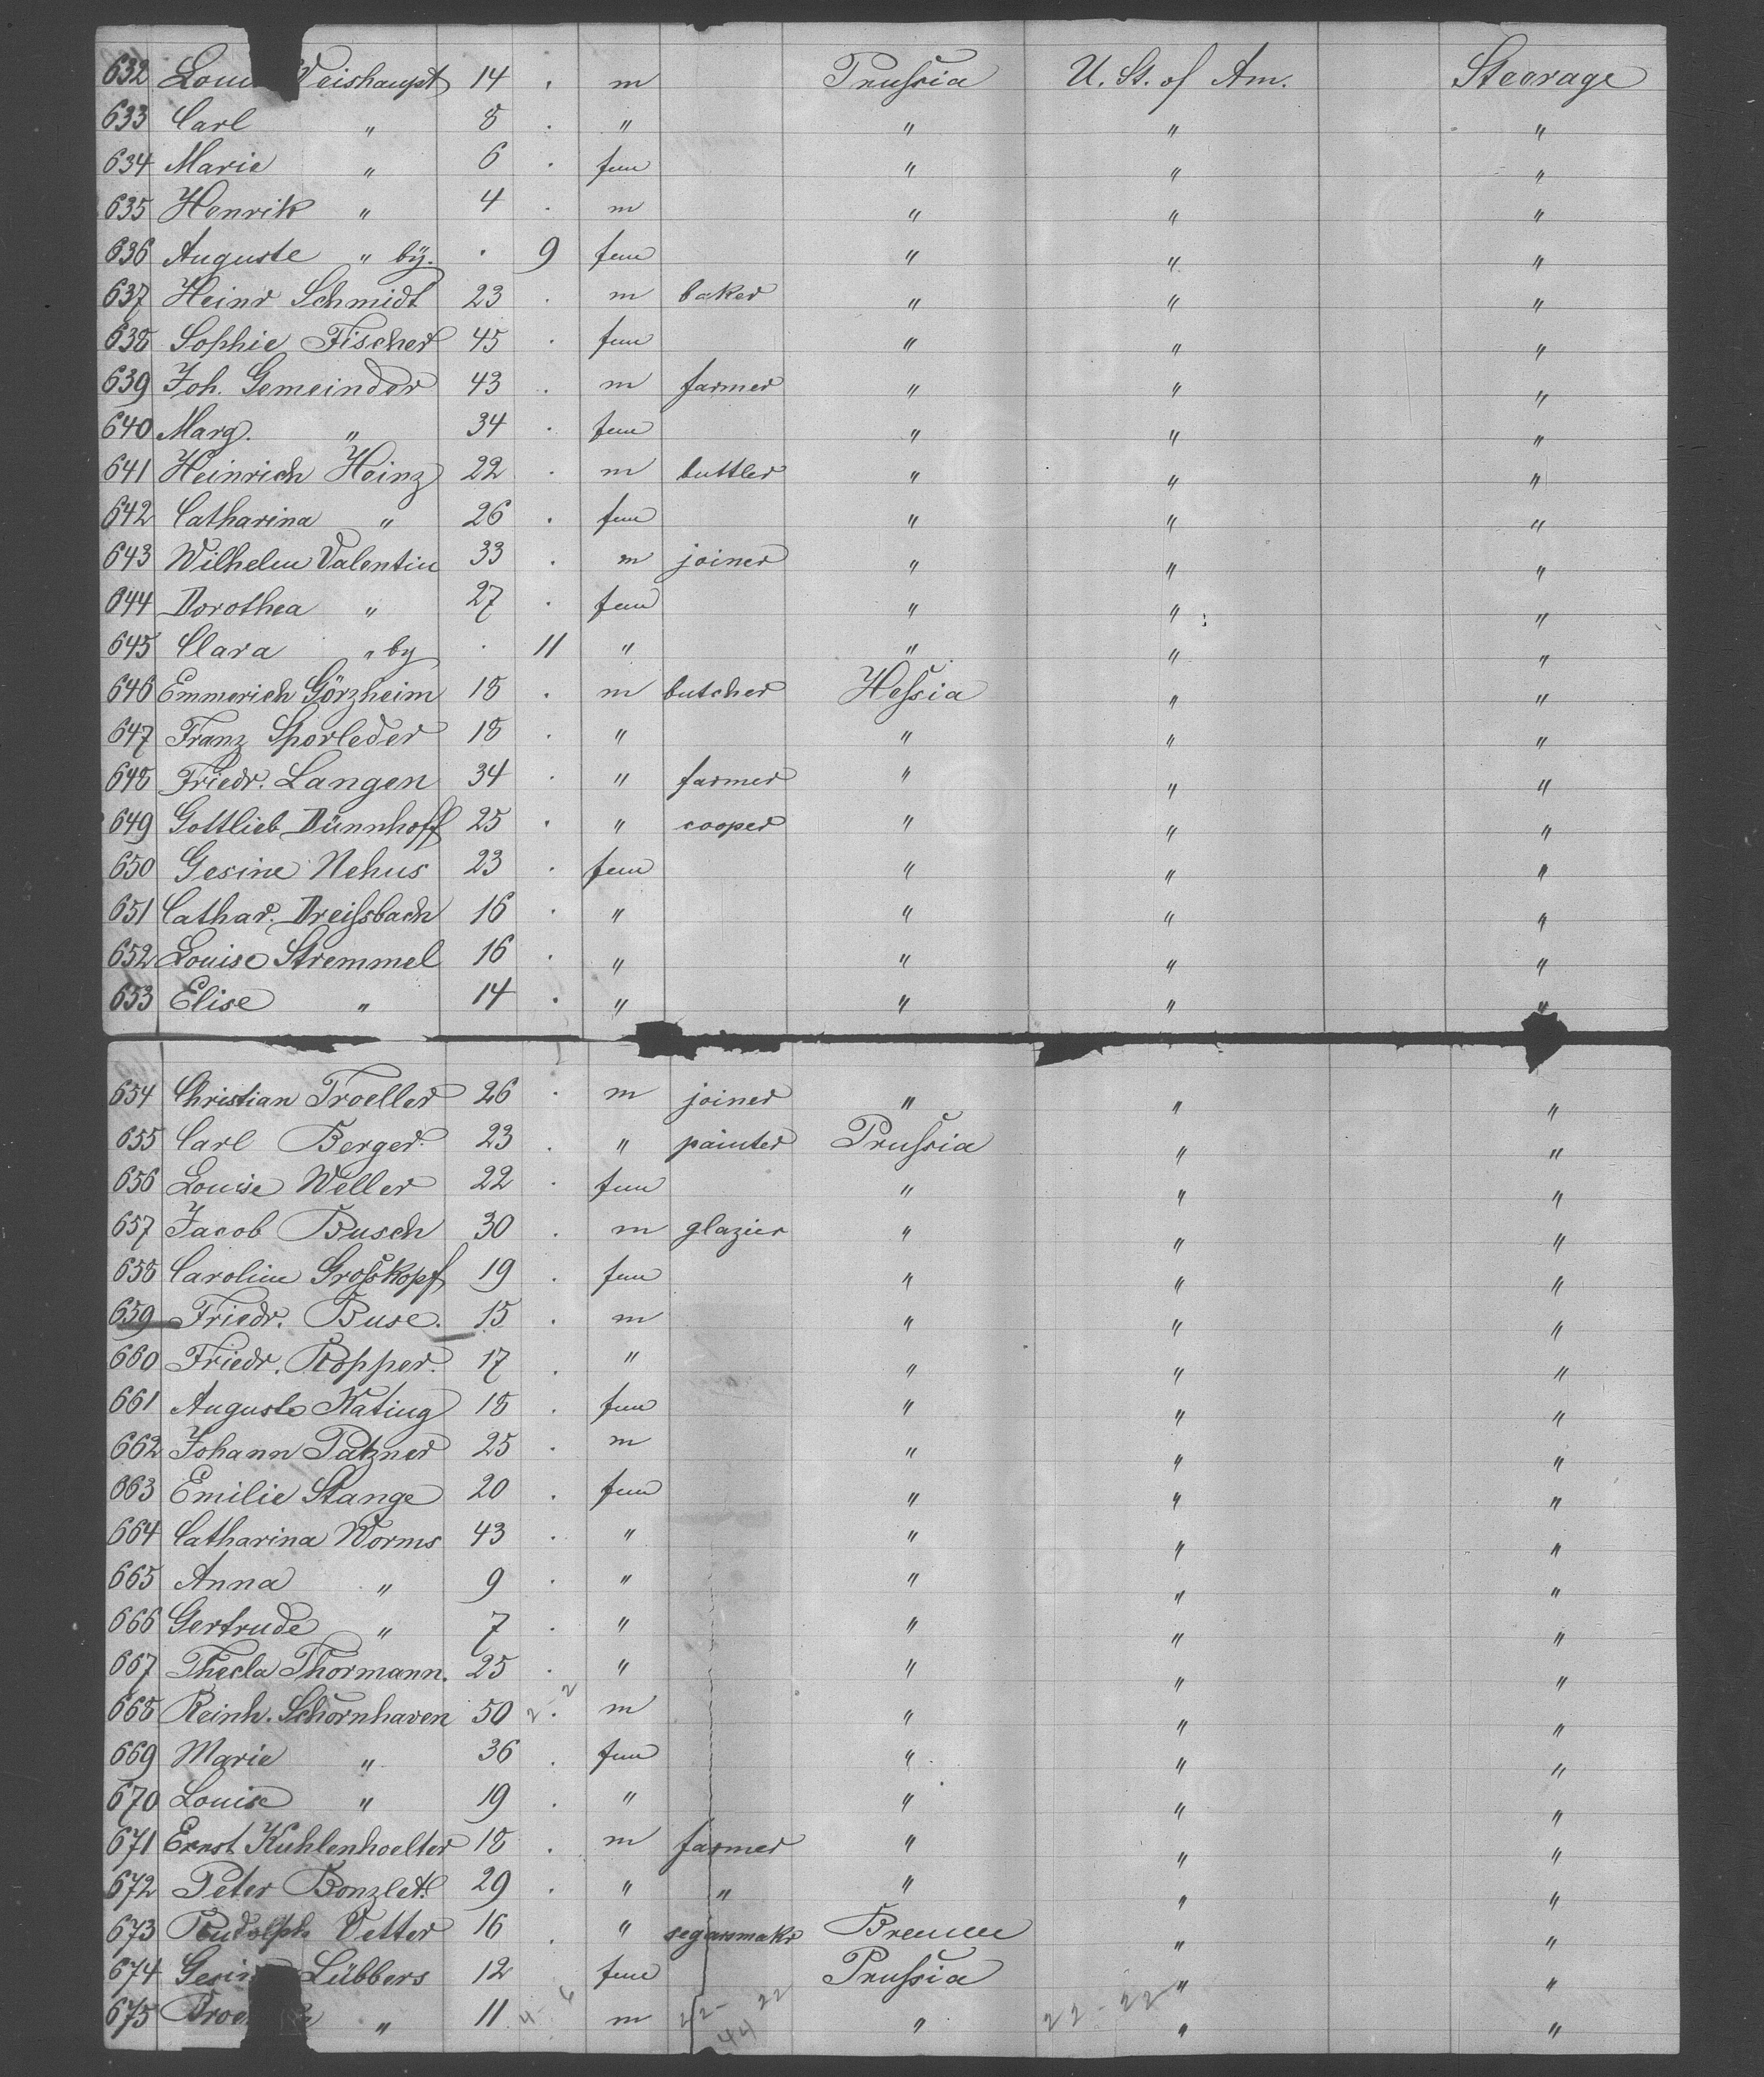 632 Weishaupt 14 . m Prussia U. St. of Am. Steerage
633 Carl " 8 . " " " "
634 Marie " 6 . fem " " "
635 Henrik " 4 . m " " "
636 Auguste " by. . 9 fem " " "
637 Heinr Schmidt 23 . m baker " " "
638 Sophie Fischer 45 . fem " " "
639 Joh. Gemeinder 43 . m farmer " " "
640 Marg. " 34 . fem " " "
641 Heinrich Heinz 22 . m buttler " " "
642 Catharina " 26 . fem " " "
643 Wilhelm Valentin 33 . m joiner " " "
644 Dorothea " 27 . fem " " "
645 Clara " by . 11 " " " "
646 Emmerich Görzheim 18 . m butcher Hessia " "
647 Franz Sporleder 18 . " " " "
648 Friedr. Langen 34 . " farmer " " "
649 Gottlieb Dünnhoff 25 . " cooper " " "
650 Gesine Nehus 23 . fem " " "
651 Cathar. Dreissbach 16 . " " " "
652 Louise Stremmel 16 . " " " "
653 Elise " 14 . " " " "
654 Christian Troeller 26 . m joiner " " "
655 Carl Berger. 23 . " painter Prussia " "
656 Louise Weller 22 . fem " " "
657 Jacob Busch 30 . m glazier " " "
658 Caroline Grosskopf 19 . fem " " "
659 Friedr. Buse. 15 . m " " "
660 Friedr. Ropper. 17 . " " " "
661 Auguste Kating 18 . fem " " "
662 Johann Patzner 25 . m " " "
663 Emilie Stange 20 . fem " " "
664 Catharina Worms 43 . " " " "
665 Anna " 9 . " " " "
666 Gertrude " 7 . " " " "
667 Thecla Thormann. 25 . " " " "
668 Reinh. Schornhaven 50 2-2 . m " " "
669 Marie " 36 . fem " " "
670 Louise " 19 . " " " "
671 Ernst Kuhlenhoelter 18 . m farmer " " "
672 Peter Bonzlet. 29 . " " " " "
673 Rudolph Vetter 16 . " segarmakr Bremen " "
674 Lübbers 12 fem Prussia " "
675 " 11 4-6 m 22-22 " 22-22 " "
44